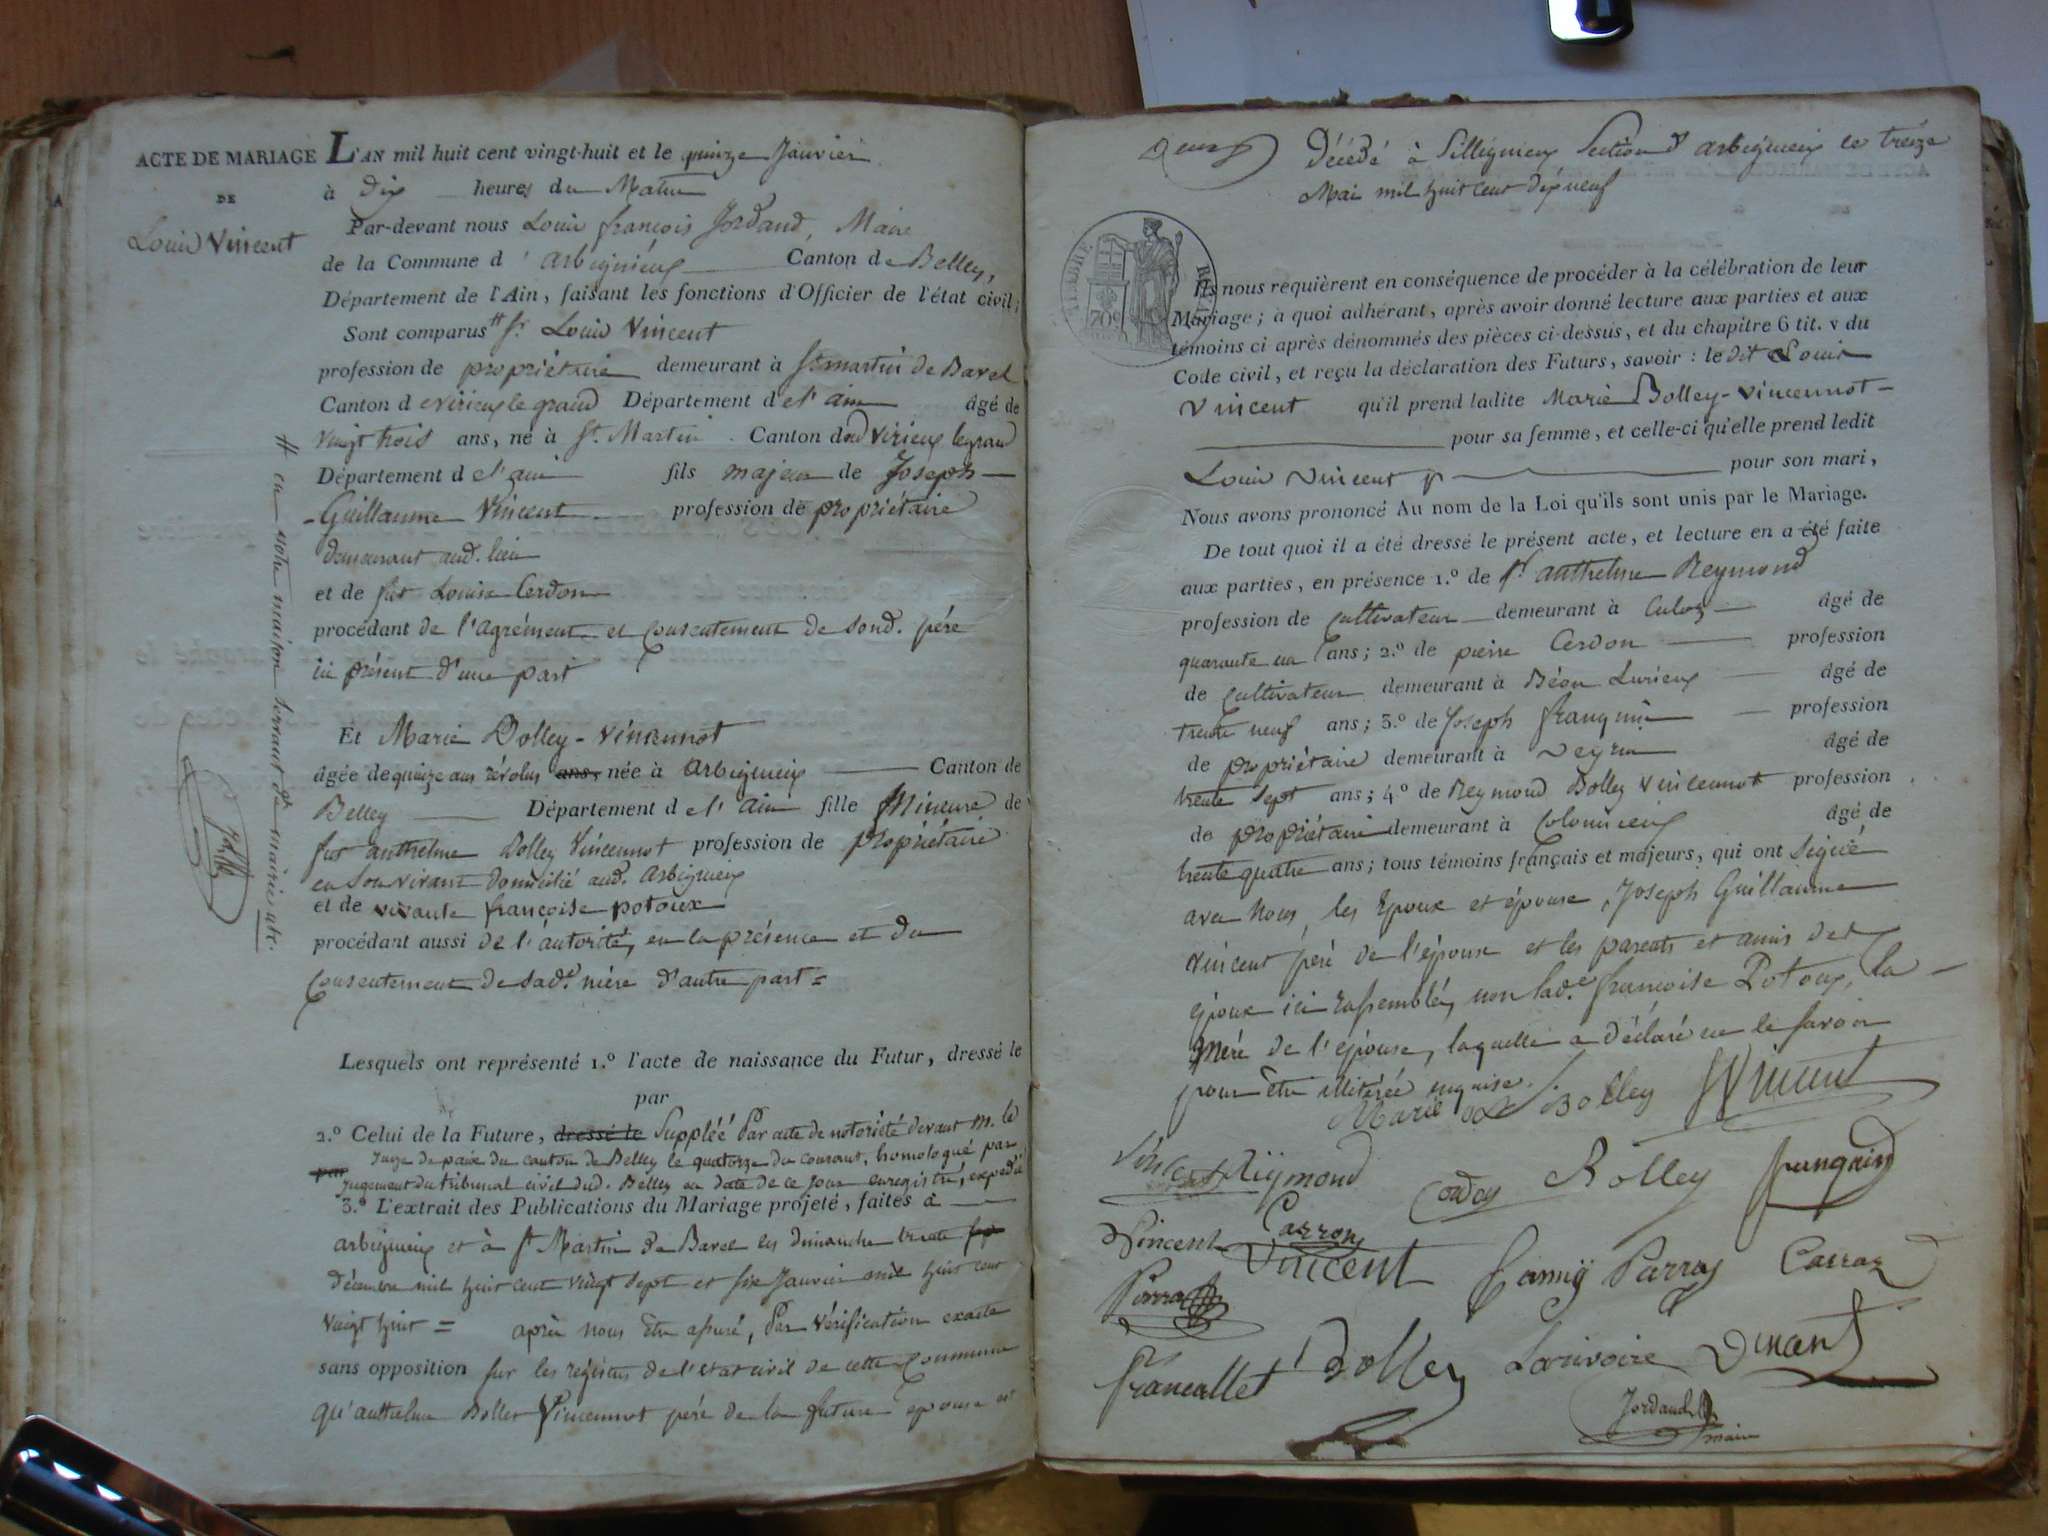 ACTE DE MARIAGE
DE
Louis Vincent
L'AN mil huit cent vingt-huit et le quinze Janvier
à dix heures du Matin
Par-devant nous Louis françois Jordand, Maire
de la Commune d'arbignieux Canton de Belley,
Département de l'Ain, faisant les fonctions d'Officier de l'état civil;
Sont comparus # Sr. Louis Vincent
profession de propriétaire demeurant à St martin de Bavel
Canton de virieux le grand Département de l'ain âgé de
vingt trois ans, né à St. Martin Canton dud virieux legrand
Département de l'ain fils majeur de Joseph
Guillaume Vincent profession de propriétaire
demeurant aud. lieu
et de fut Louise Cerdon
procédant de l'agrément et Consentement de sond. père
ici présent d'une part
# en notre maison servant de mairie
Et Marie Dolley-Vincennot
âgée de quinze ans révolus ans, née à arbignieux Canton de
Belley Département de l'ain fille Mineure de
fut anthelme Dolley Vincennot profession de propriétaire
en son vivant domicilié aud. arbignieux
et de vivante françoise potoux
procédant aussi de l'autorité, en la présence et du
Consentement de sade. mère d'autre part =
Lesquels ont représenté 1.º l'acte de naissance du Futur, dressé le
par
2.º Celui de la Future, dressé le Suppléé Par acte de notoriété devant M. le
Juge de paix du canton de Belley le quatorze du courant, homologué par
par Jugement du tribunal civil dud. Belley en date de ce jour enregistré, expédié
3.º L'extrait des Publications du Mariage projeté, faites à
arbignieux et à St Martin de Bavel les dimanche trente
décembre mil huit cent vingt sept et six Janvier mil huit cent
vingt huit = après nous être assuré, Par vérification exacte
sans opposition sur les registres de l'état civil de cette Commune
qu'anthelme Dolley Vincennot père de la future épouse est
Décédé à Silligneux Section d'arbignieux le treize
Mai mil huit cent dix neuf
TIMBRE ROYAL
70 c
Ils nous requièrent en conséquence de procéder à la célébration de leur
Mariage; à quoi adhérant, après avoir donné lecture aux parties et aux
témoins ci après dénommés des pièces ci-dessus, et du chapitre 6 tit. v du
Code civil, et reçu la déclaration des Futurs, savoir: le dit Louis
Vincent qu'il prend ladite Marie Bolley-Vincennot
pour sa femme, et celle-ci qu'elle prend ledit
Louis Vincent pour son mari,
Nous avons prononcé Au nom de la Loi qu'ils sont unis par le Mariage.
De tout quoi il a été dressé le présent acte, et lecture en a été faite
aux parties, en présence 1.º de Sr. anthelme Reymond
profession de cultivateur demeurant à Culoz âgé de
quarante un ans; 2.º de pierre Cerdon profession
de cultivateur demeurant à Béon Luirieux âgé de
trente neuf ans; 3.º de Joseph franquin profession
de propriétaire demeurant à Veyrin âgé de
trente sept ans; 4º de Reymond Dolley Vincennot profession
de propriétaire demeurant à Colomieux âgé de
trente quatre ans; tous témoins français et majeurs, qui ont signé
avec Nous, les époux et épouse, Joseph Guillaume
Vincent père de l'époux et les parents et amis des
époux ici rassemblés, non lade. françoise Potoux, la
mère de l'épouse, laquelle a déclaré ne le savoir
pour être illitérée requise.
Marie Dolley Vincent
Vincent Reymond Bolley franquin
Vincent Carron Vincent Parraz Carraz
francallet Dolley Larivoire Dinant
Jordand
maire